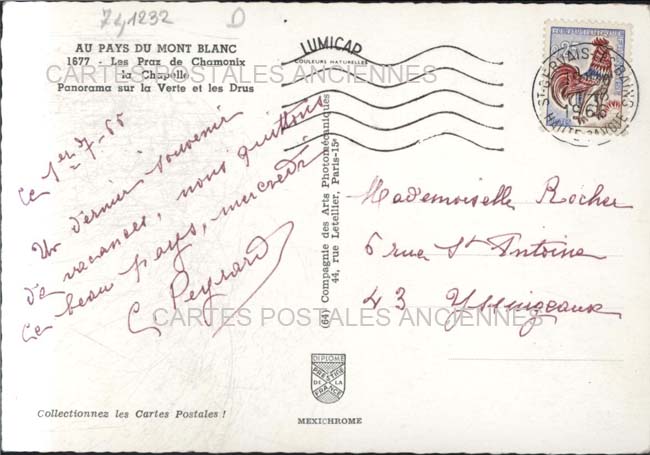 741232
D
AU PAYS DU MONT BLANC
1677 - Les Praz de Chamonix
la Chapelle
Panorama sur la Verte et les Drus
LUMICAP
COULEURS NATURELLES
CARTES POSTALES ANCIENNES
Ce 1er-7-65
Un dernier souvenir
de vacances, nous quittons
ce beau pays, mercredi
G Peyrard
(64) Compagnie des Arts Photomécaniques
44, rue Letellier, Paris-15e
ST-GERVAIS-LES-BAINS
HAUTE-SAVOIE
Mademoiselle Rocher
6 rue St Antoine
43 Yssingeaux
CARTES POSTALES ANCIENNES
DIPLOME
PRESTIGE
DE LA
FRANCE
MEXICHROME
Collectionnez les Cartes Postales !